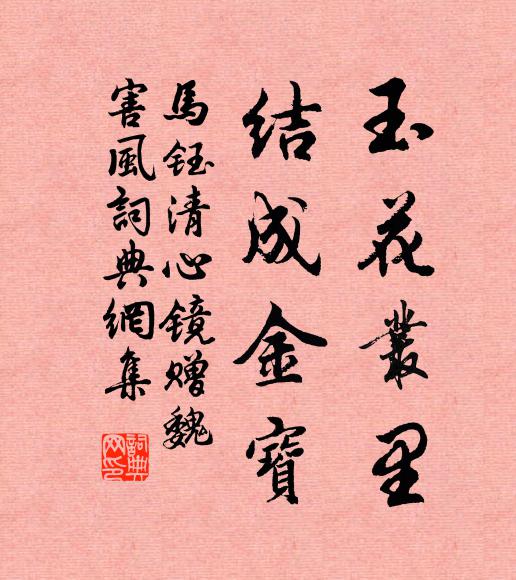 玉花叢里
结成金寶
馬钰清心镜赠魏
害風詞典網集
詞典网印